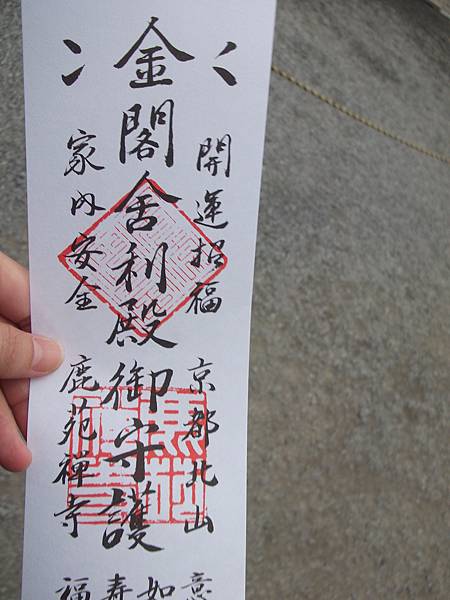 開運招福 京都北山
金閣舍利殿御守護
家内安全 鹿苑禅寺
如
寿
福